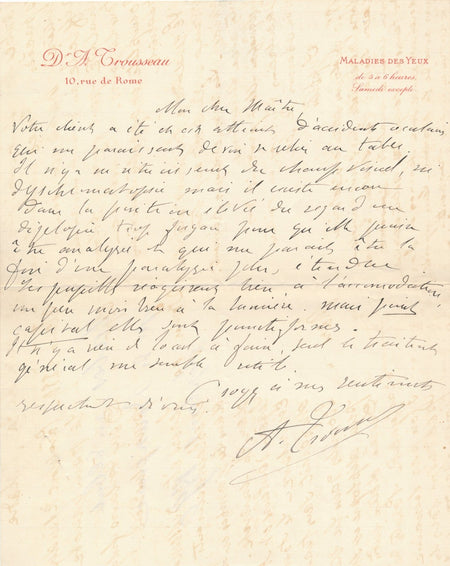 Dr A. Trousseau
10, rue de Rome
MALADIES DES YEUX
de 5 à 6 heures,
Samedi excepté.
Mon cher Maître
Votre client a été et est atteint d'accidents oculaires
qui me paraissent devoir se relier au tabes.
Il n'y a ni rétrécissement du champ visuel, ni
dyschromatopsie mais il existe encore
dans la position élevée du regard une
diplopie trop fugace pour qu'elle puisse
être analysée et qui me paraît être la
fin d'une paralysie plus étendue.
Les pupilles réagissent bien à l'accomodation,
un peu moins bien à la lumière, mais point
capital elles sont punctiformes.
Il n'y a rien de local à faire, seul le traitement
général me semble utile.
Croyez à mes sentiments
respectueux dévoués.
A. Trousseau